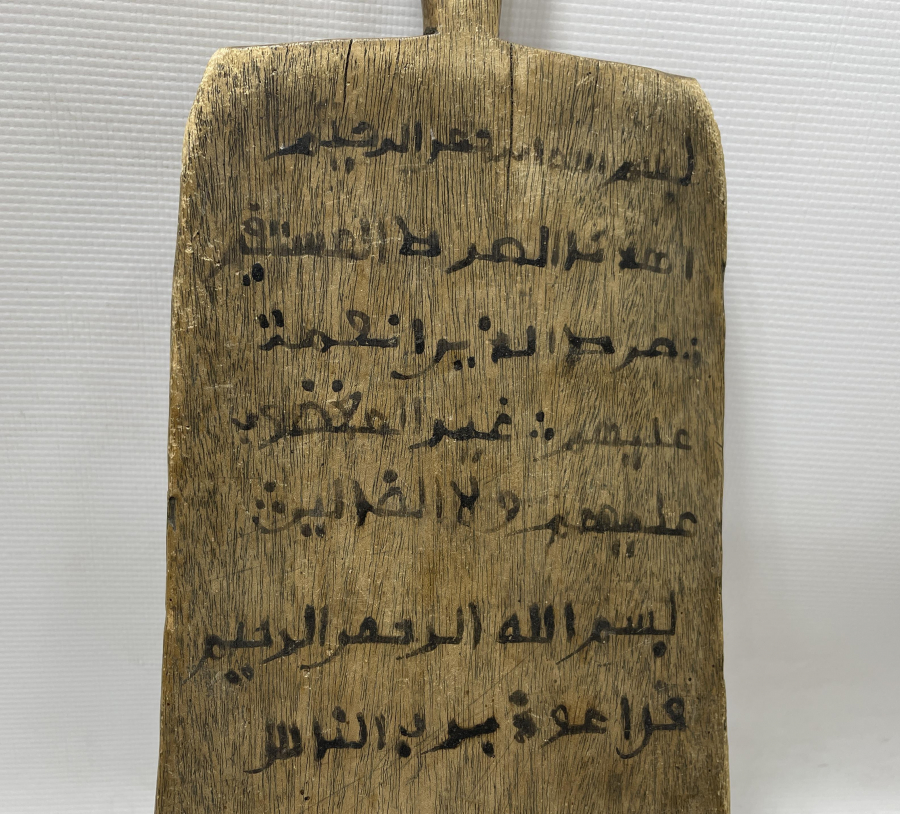 بسم الله الرحمن الرحيم
اهدنا الصرط المستقيم
صرط الذين انعمت
عليهم غير المغضوب
عليهم ولا الضالين
بسم الله الرحمن الرحيم
قل اعوذ برب الناس